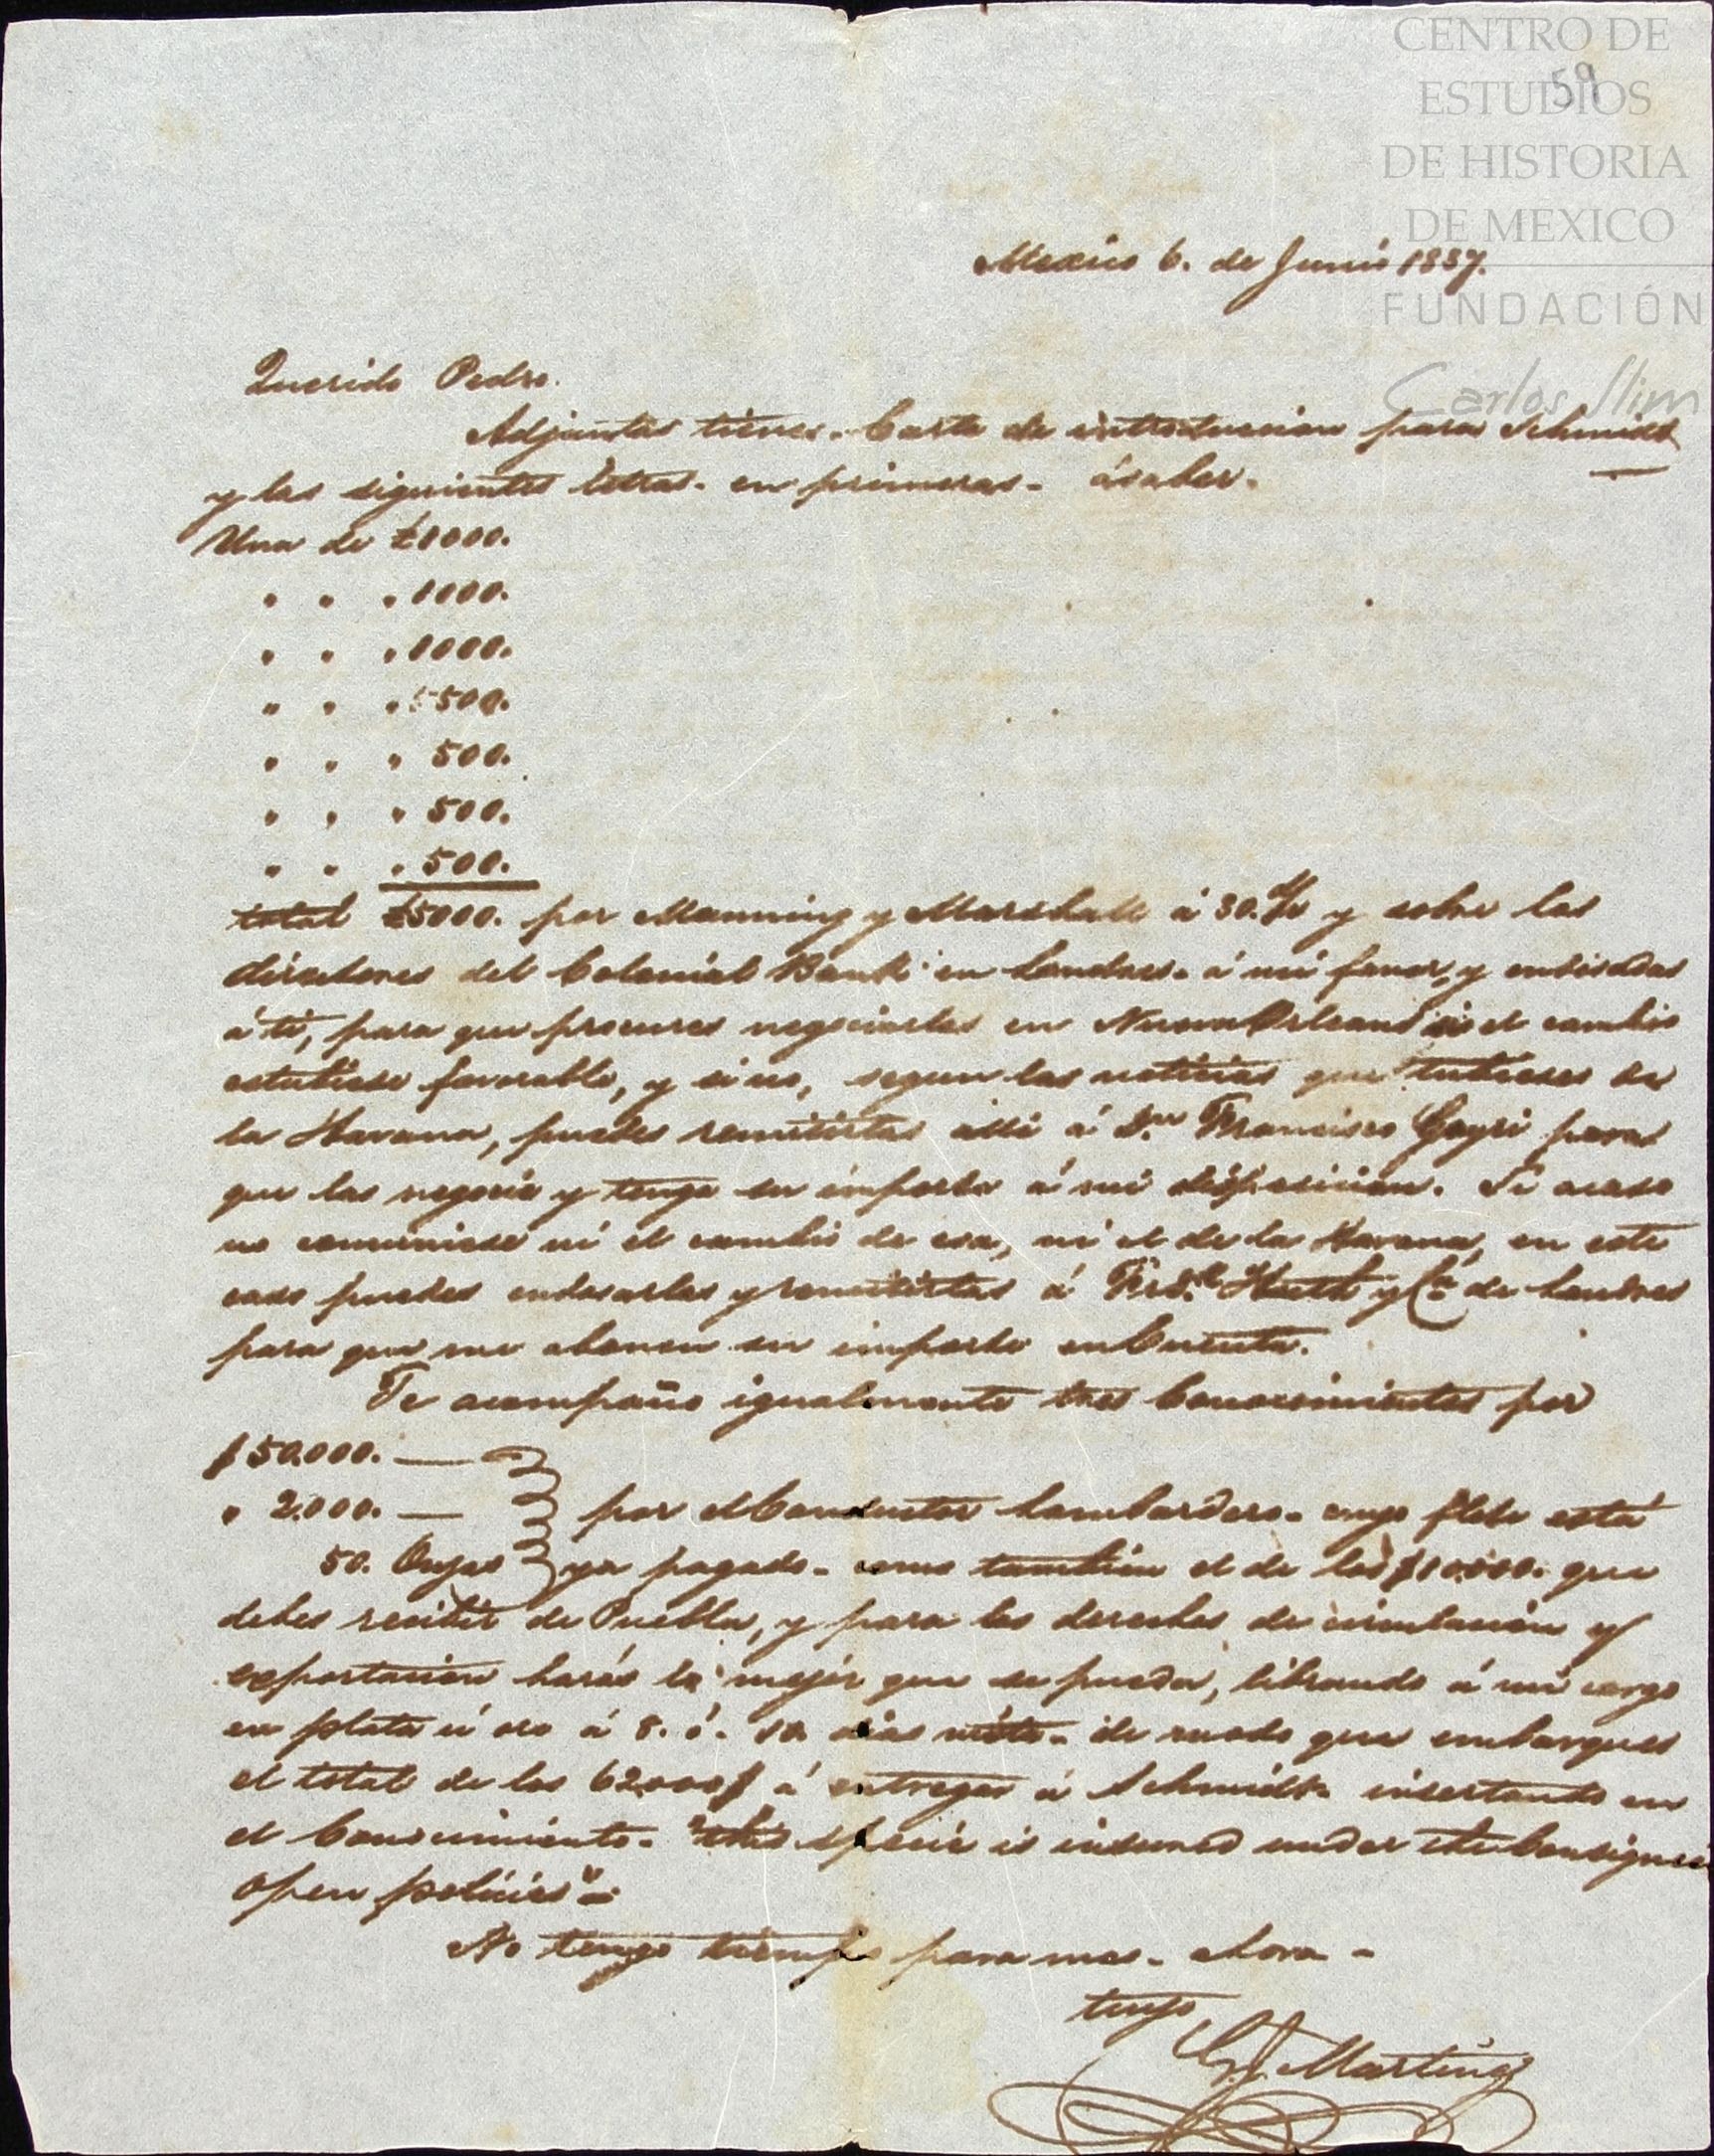 CENTRO DE
ESTUDIOS
DE HISTORIA
DE MEXICO
FUNDACIÓN
Carlos Slim
59
Mexico 6. de Junio 1837.
Querido Pedro.
Adjuntas tienes. Carta de introduccion para Schmidt
y las siguientes letras. en primeras. á saber.
Una de £1000.
" " " 1000.
" " " 1000.
" " " 500.
" " " 500.
" " " 500.
" " " 500.
total £5000. por Manning y Marshall á 30. y sobre los
directores del Colonial Bank en Londres. á mi favor, y endosadas
á ti, para que procures negociarlas en Nueva Orleans si el cambio
estubiese favorable, y sino, segun las noticias que tubieses de
la Havana, puedes remitirlas alli á Dn. Francisco Goyri para
que las negocie y tenga su importe á mi disposicion. Si acaso
no conviniese ni el cambio de esa, ni el de la Havana, en este
caso puedes endosarlas y remitirlas á Fredk. Huth y Ca. de Londres
para que me abonen su importe en Cuenta.
Te acompaño igualmente tres Conocimientos por
$ 50.000. —
" 2.000. — por el Conductor Lombardero. cuyo flete está
50. ya pagado. como tambien el de los $10.000. que
debes recibir de Puebla, y para los derechos de circulacion y
exportacion harás lo mejor que se pueda, librando á mi cargo
en plata ú oro á 8. ó. 10. dias vista. de modo que embarques
el total de los 62000$ á entregar á Schmidt. insertando en
el Conocimiento. "this specie is insured under the
open policies".
No tengo tiempo para mas. ahora.
tuyo
Martinez